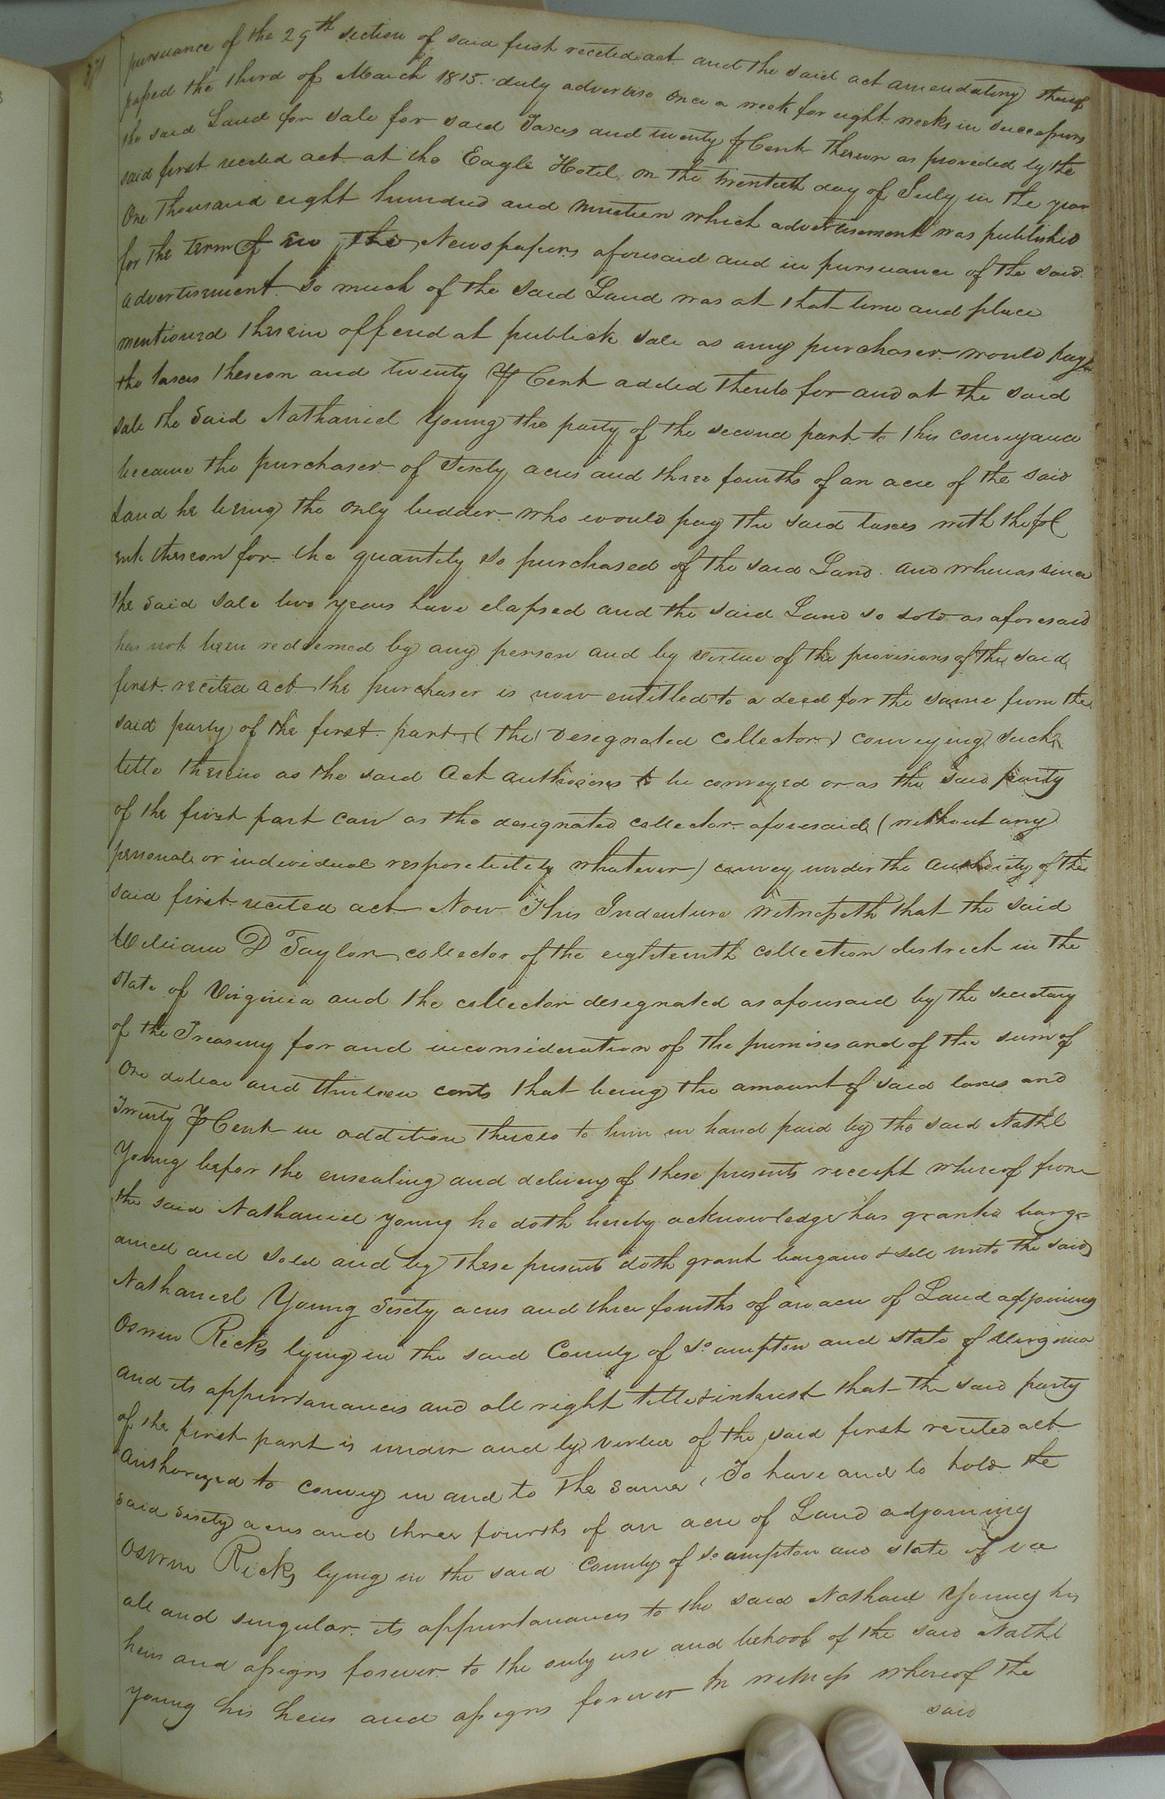 pursuance of the 29th section of said first recited act and the said act amendatory thereof
passed the third of March 1815. duly advertise once a week for eight weeks in succession
the said Land for sale for said Taxes and twenty ⅌ Cent thereon as provided by the
said first recited act at the Eagle Hotel on the twentieth day of July in the year
One thousand eight hundred and nineteen which advertisement was published
for the term of in the Newspapers aforesaid and in pursuance of the said
advertisement So much of the said Land was at that time and place
mentioned therein offered at publick sale as any purchaser would pay
the taxes thereon and twenty ⅌ Cent added thereto for and at the said
sale the said Nathaniel Young the party of the second part to this conveyance
became the purchaser of Sixty acres and three fourths of an acre of the said
Land he being the only bidder who would pay the said taxes with the ⅌ C
ent thereon for the quantity so purchased of the said Land and whereas since
the said sale two years have elapsed and the said Land so sold as aforesaid
has not been redeemed by any person and by virtue of the provisions of the said
first recited act the purchaser is now entitled to a deed for the same from the
said party of the first part (the designated collector) conveying such
title therein as the said Act authorises to be conveyed or as the said party
of the first part can as the designated collector aforesaid (without any
personal or individual responsibility whatever) convey under the authority of the
said first recited act Now This Indenture Witnesseth that the said
William D Taylor collector of the eighteenth collection district in the
state of Virginia and the collector designated as aforesaid by the secretary
of the Treasury for and in consideration of the premises and of the sum of
One dollar and thirteen cents that being the amount of said taxes and
Twenty ⅌ Cent in addition thereto to him in hand paid by the said Nathl
Young befor the ensealing and delivery of these presents receipt whereof from
the said Nathaniel Young he doth hereby acknowledge has granted barg-
ained and sold and by these presents doth grant bargain & sell unto the said
Nathaniel Young Sixty acres and three fourths of an acre of Land adjoining
Oswin Ricks lying in the said County of So ampton and state of Virginia
and its appurtanances and all right title & interest that the said party
of the first part is under and by virtue of the said first recited act
Authorized to convey in and to the same, To have and to hold the
said sixty acres and three fourths of an acre of Land adjoining
Oswin Ricks lying in the said County of So ampton and state of va
all and singular its appurtanances to the said Nathanl Young his
heirs and assigns forever to the only use and behoof of the said Nathl
Young his heirs and assigns forever In witness whereof the
said